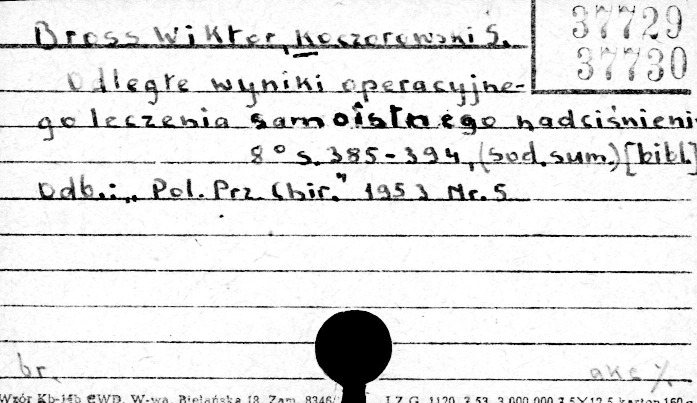 Bross Wiktor, Koczorowski S.
37729
37730
Odległe wyniki operacyjne-
go leczenia samoistnego nadciśnieni
8° s. 385-394, (sod. sum.) [bibl.]
Odb.: „Pol. Prz. Chir." 1953 Nr. 5
br.
akc %
Wzór Kb-14b CWD, W-wa, Bielańska 18. Zam. 8346/ I Z G. 1120. 3.53. 3.000.000 7,5×12,5 karton 160 g